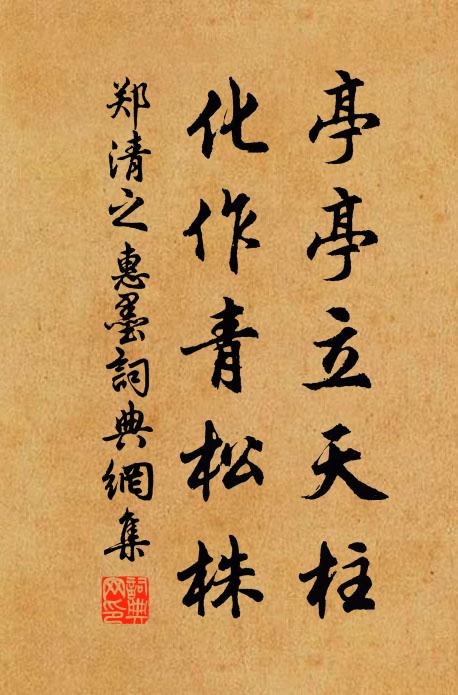 亭亭立天柱
化作青松株
郑清之惠墨詞典網集
詞典网印